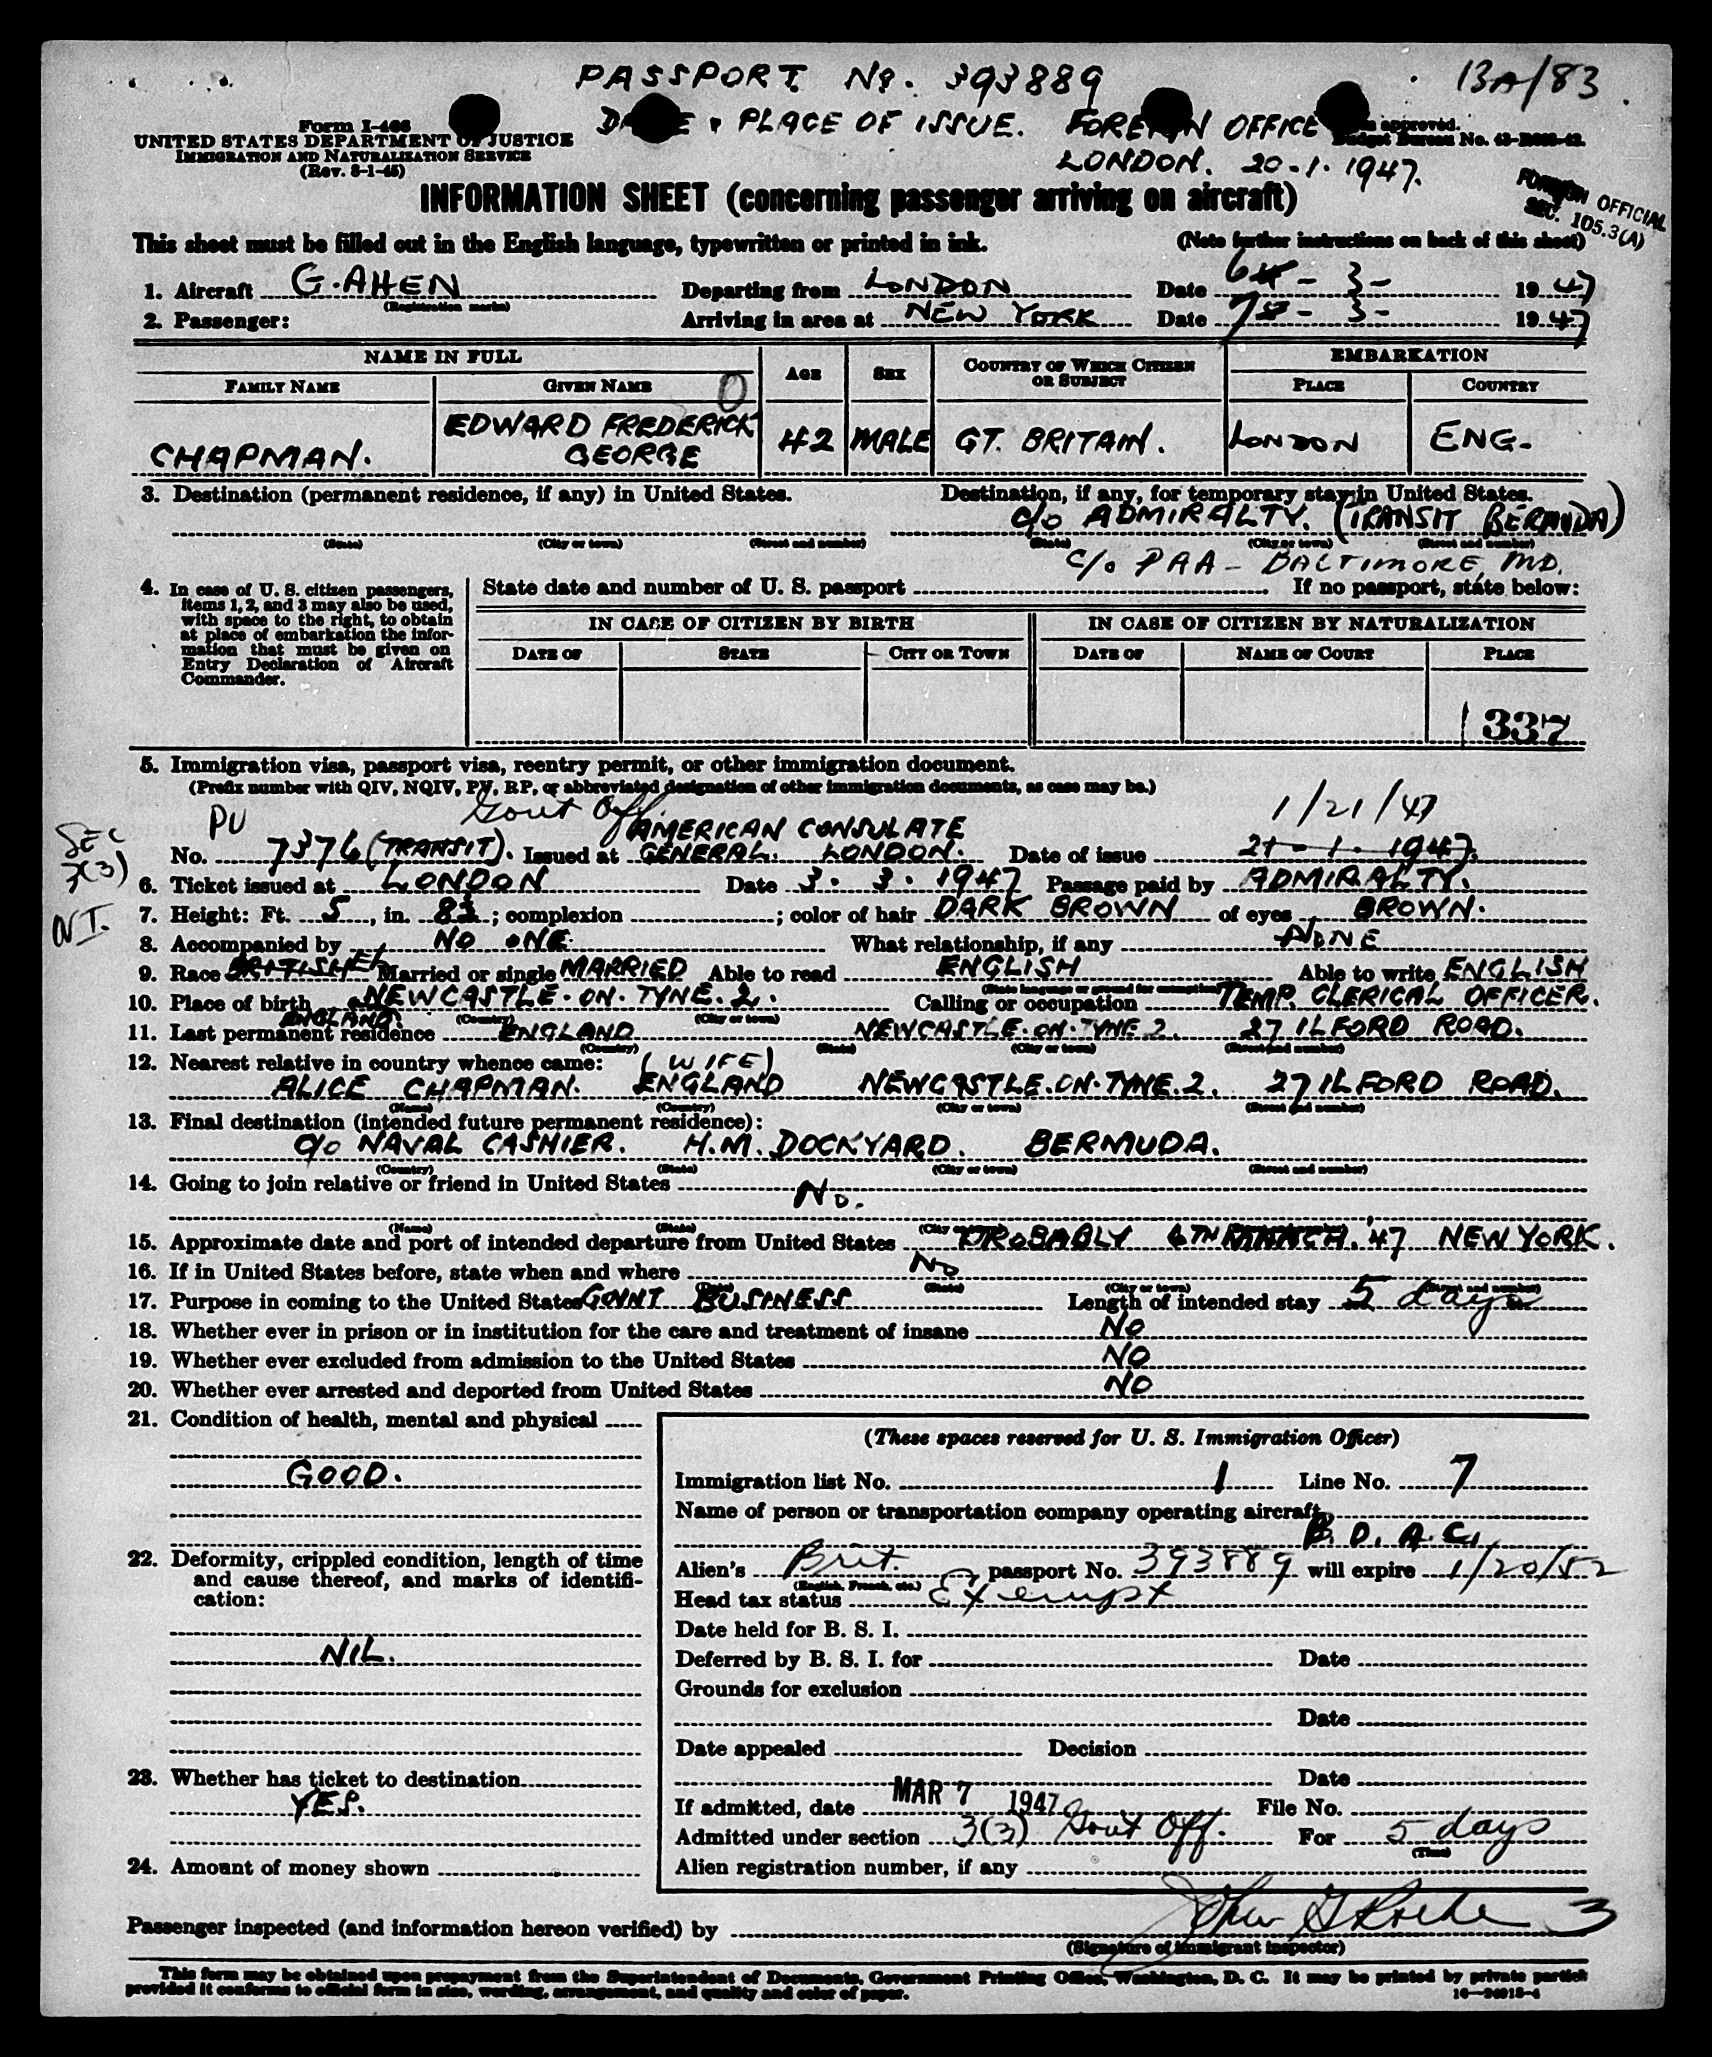 PASSPORT. No. 393889
13A/83
DATE & PLACE OF ISSUE. FOREIGN OFFICE
LONDON. 20-1-1947.
Form I-466
UNITED STATES DEPARTMENT OF JUSTICE
IMMIGRATION AND NATURALIZATION SERVICE
(Rev. 8-1-45)
approved.
Budget Bureau No.
FOREIGN OFFICIAL
SEC. 105.3(A)
INFORMATION SHEET (concerning passenger arriving on aircraft)
This sheet must be filled out in the English language, typewritten or printed in ink. (Note further instructions on back of this sheet)
1. Aircraft G.AHEN Departing from LONDON Date 6 - 3 - 1947
(Registration marks)
2. Passenger: Arriving in area at NEW YORK Date 7 - 3 - 1947
NAME IN FULL AGE SEX COUNTRY OF WHICH CITIZEN OR SUBJECT EMBARKATION
FAMILY NAME GIVEN NAME PLACE COUNTRY
0
CHAPMAN. EDWARD FREDERICK GEORGE 42 MALE GT. BRITAIN. LONDON ENG-
3. Destination (permanent residence, if any) in United States. Destination, if any, for temporary stay in United States.
c/o ADMIRALTY. (TRANSIT BERMUDA)
(State) (City or town) (Street and number) (State) (City or town) (Street and number)
c/o PAA - BALTIMORE, MD.
4. In case of U. S. citizen passengers, items 1, 2, and 3 may also be used, with space to the right, to obtain at place of embarkation the information that must be given on Entry Declaration of Aircraft Commander.
State date and number of U. S. passport If no passport, state below:
IN CASE OF CITIZEN BY BIRTH IN CASE OF CITIZEN BY NATURALIZATION
DATE OF STATE CITY OR TOWN DATE OF NAME OF COURT PLACE
1337
5. Immigration visa, passport visa, reentry permit, or other immigration document.
(Prefix number with QIV, NQIV, PV, RP, or abbreviated designation of other immigration documents, as case may be.)
PV Gout Off. 1/21/47
SEC 3(3)
No. 7376 (TRANSIT). Issued at AMERICAN CONSULATE GENERAL. LONDON. Date of issue 21-1-1947.
6. Ticket issued at LONDON Date 3. 3. 1947 Passage paid by ADMIRALTY.
7. Height: Ft. 5, in. 8½; complexion ; color of hair DARK BROWN of eyes BROWN.
8. Accompanied by NO ONE. What relationship, if any NONE
9. Race BRITISH Married or single MARRIED Able to read ENGLISH Able to write ENGLISH
(State language or ground for exemption)
10. Place of birth NEWCASTLE-ON-TYNE.2. Calling or occupation TEMP. CLERICAL OFFICER.
ENGLAND. (Country) (City or town)
11. Last permanent residence ENGLAND NEWCASTLE-ON-TYNE 2. 27 ILFORD ROAD.
(Country) (State) (City or town) (Street and number)
12. Nearest relative in country whence came: (WIFE)
ALICE CHAPMAN. ENGLAND NEWCASTLE-ON-TYNE.2. 27 ILFORD ROAD.
(Name) (Country) (City or town) (Street and number)
13. Final destination (intended future permanent residence):
c/o NAVAL CASHIER. H.M. DOCKYARD. BERMUDA.
(Country) (State) (City or town) (Street and number)
14. Going to join relative or friend in United States No.
(Name) (State) (City or town) (Street and number)
15. Approximate date and port of intended departure from United States PROBABLY 6TH MARCH. '47 NEW YORK.
16. If in United States before, state when and where No
(Date) (State) (City or town) (Street and number)
17. Purpose in coming to the United States GOVNT BUSINESS Length of intended stay 5 days
18. Whether ever in prison or in institution for the care and treatment of insane NO
19. Whether ever excluded from admission to the United States NO
20. Whether ever arrested and deported from United States NO
21. Condition of health, mental and physical
GOOD.
22. Deformity, crippled condition, length of time and cause thereof, and marks of identification:
NIL.
23. Whether has ticket to destination
YES.
24. Amount of money shown
(These spaces reserved for U. S. Immigration Officer)
Immigration list No. 1 Line No. 7
Name of person or transportation company operating aircraft
B.O.A.C.
Alien's Brit. passport No. 393889 will expire 1/20/52
(English, French, etc.)
Head tax status Exempt
Date held for B. S. I.
Deferred by B. S. I. for Date
Grounds for exclusion
Date
Date appealed Decision
Date
If admitted, date MAR 7 1947 File No.
Admitted under section 3(3) Gout Off. For 5 days
(Time)
Alien registration number, if any
Passenger inspected (and information hereon verified) by 3
(Signature of immigrant inspector)
This form may be obtained upon prepayment from the Superintendent of Documents, Government Printing Office, Washington, D. C. It may be printed by private parties
provided it conforms to official form in size, wording, arrangement, and quality and color of paper. 16—24918-4